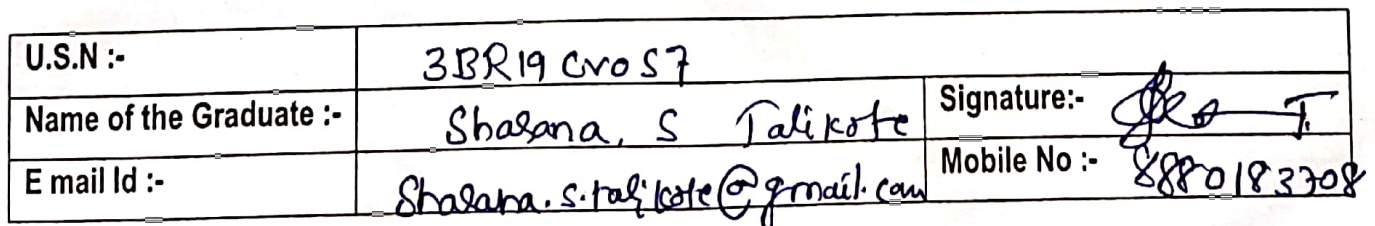 U.S.N :- 3BR19CV057
Name of the Graduate :- Sharana, S Talikote Signature:-
E mail Id :- Sharana.s.talikote@gmail.com Mobile No :- 8880183708